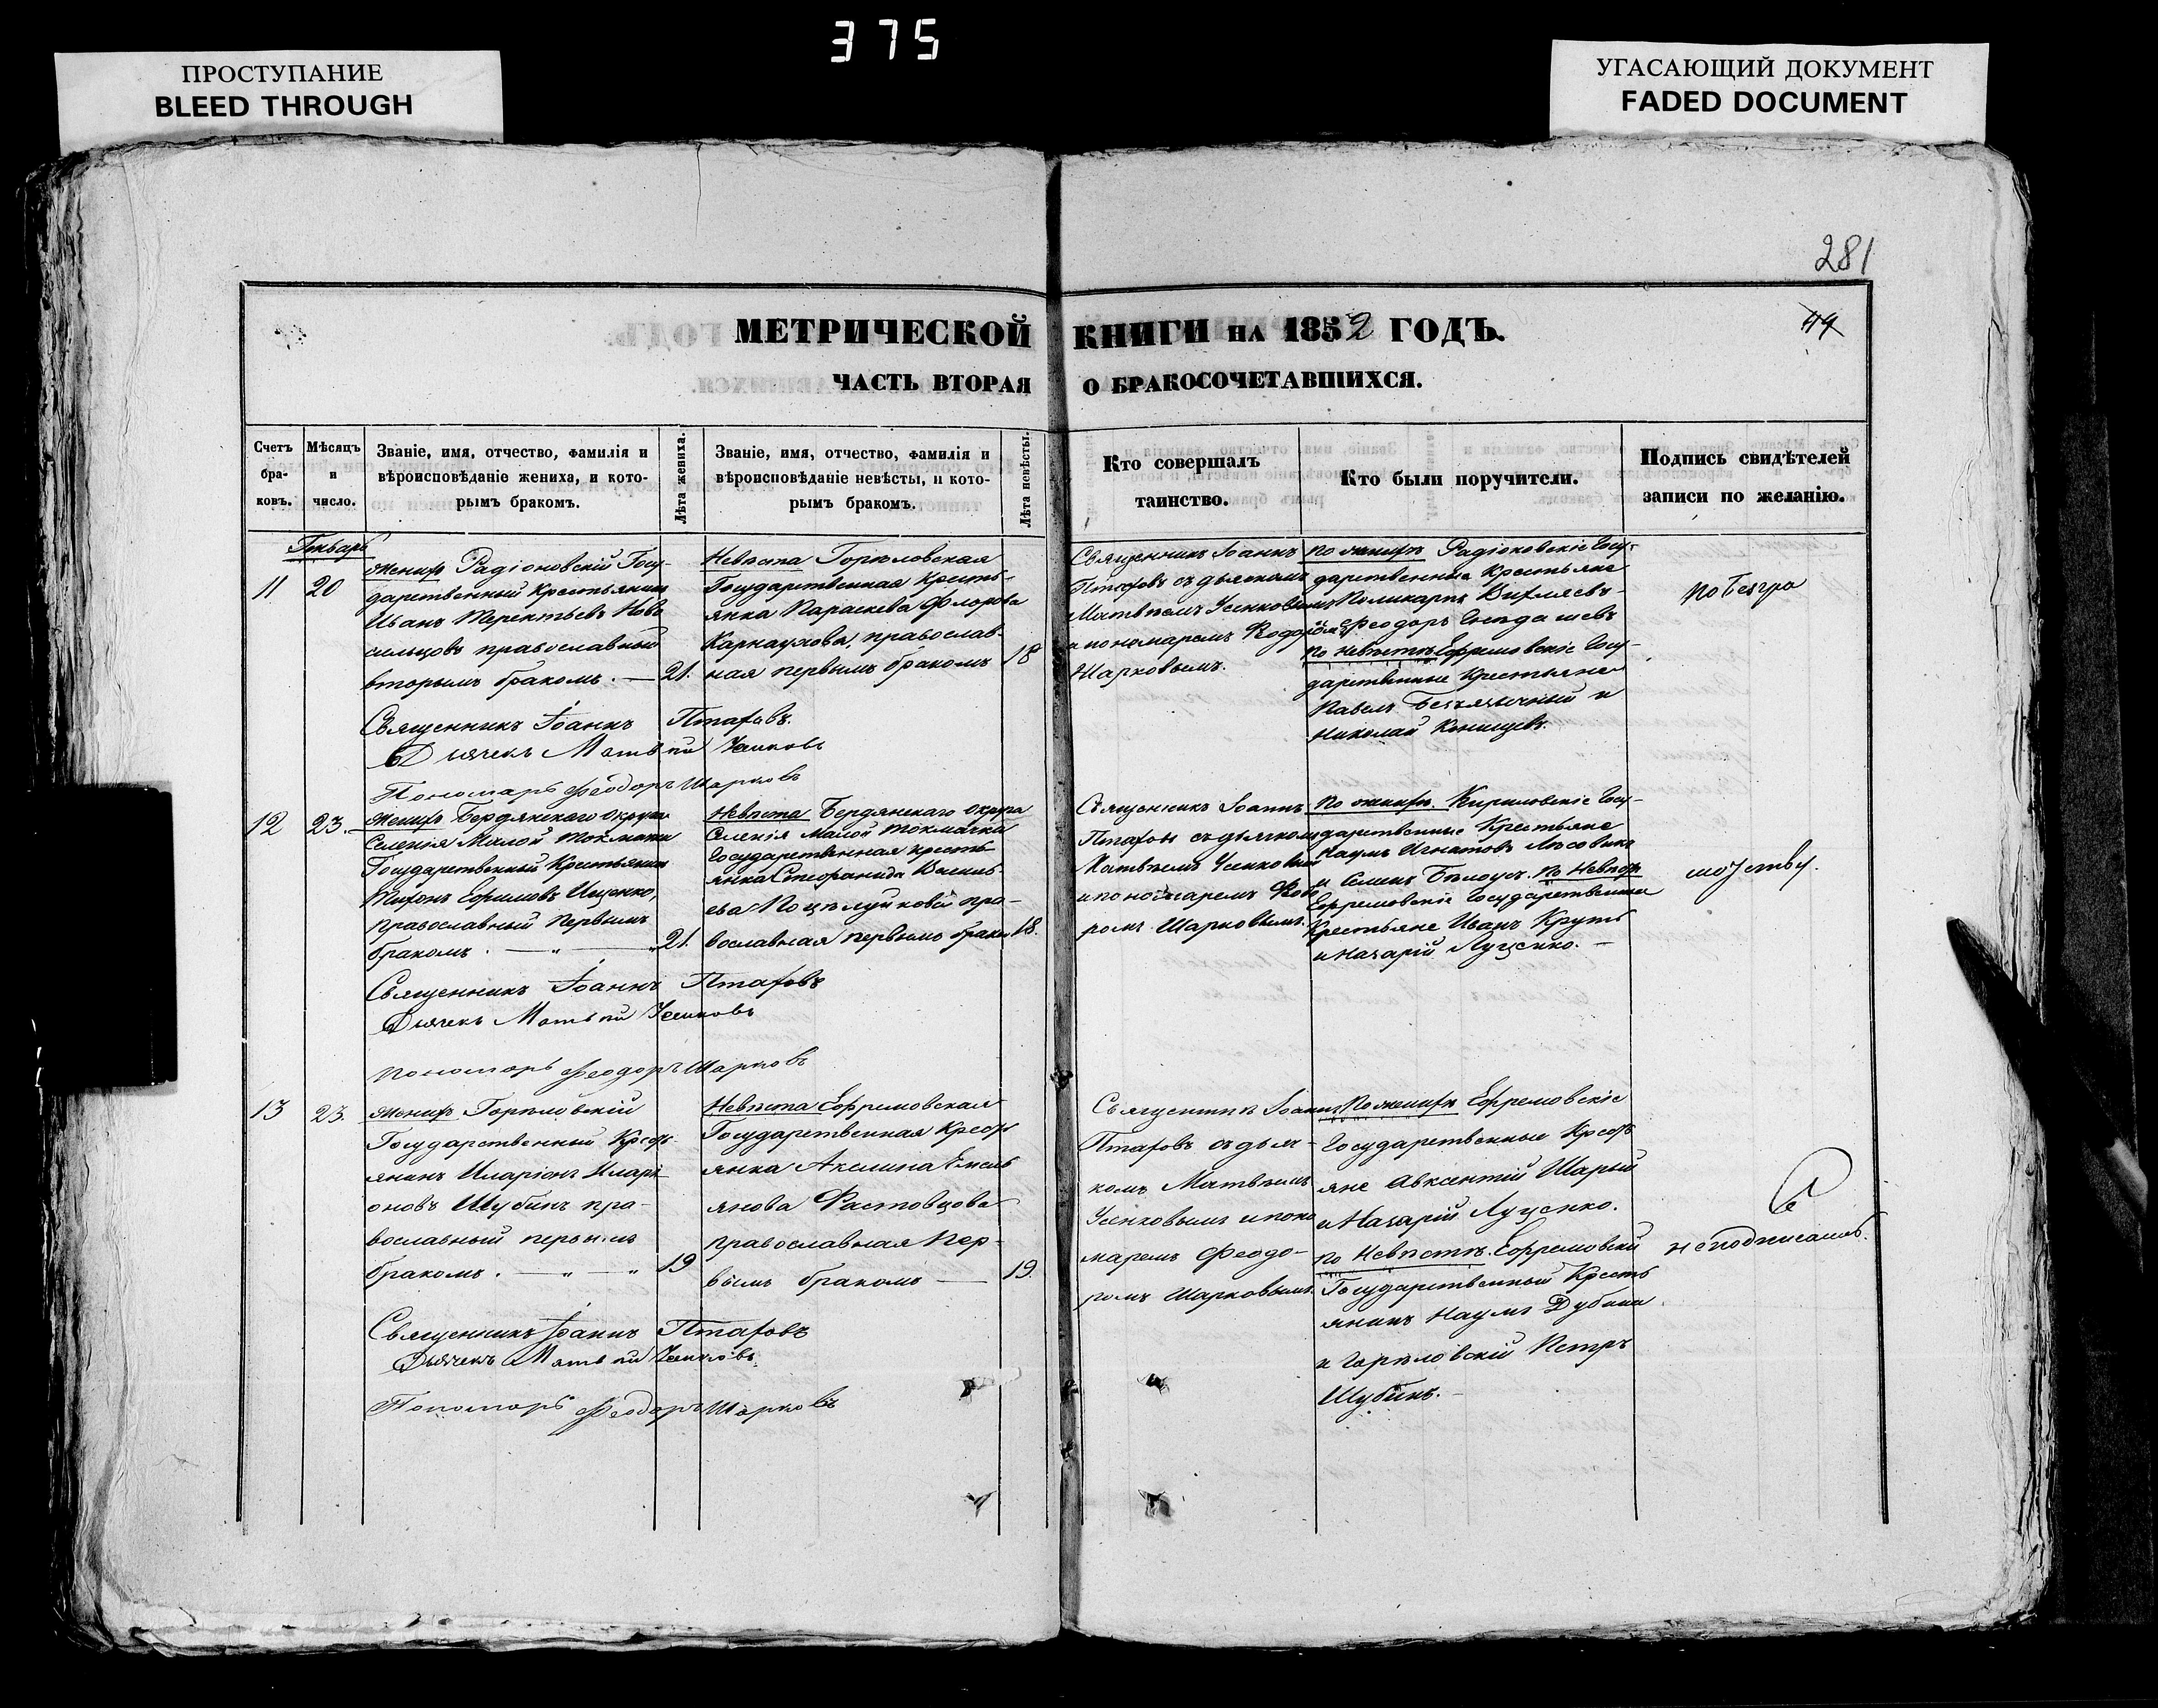 375
ПРОСТУПАНИЕ
BLEED THROUGH
УГАСАЮЩИЙ ДОКУМЕНТ
FADED DOCUMENT
281
44
МЕТРИЧЕСКОЙ КНИГИ НА 1852 ГОДЪ.
ЧАСТЬ ВТОРАЯ О БРАКОСОЧЕТАВШИХСЯ.
Счетъ
бра-
ковъ.
Мѣсяцъ
и
число.
Званіе, имя, отчество, фамилія и
вѣроисповѣданіе жениха, и кото-
рымъ бракомъ.
Лѣта жениха.
Званіе, имя, отчество, фамилія и
вѣроисповѣданіе невѣсты, и кото-
рымъ бракомъ.
Лѣта невѣсты.
Кто совершалъ
таинство.
Кто были поручители.
Подпись свидѣтелей
записи по желанію.
Генварь
11
20
Женихъ Радіоновскій Госу-
дарственный Крестьянинъ
Иванъ Терентьевъ Ново
сильцовъ православный
вторымъ бракомъ.
21.
Невѣста Горѣловская
Государственная Кресть-
янка Параскева Флорова
Карнаухова, православ-
ная первымъ бракомъ
18
Священникъ Іоаннъ
Птаховъ съ дьячкомъ
Матвѣемъ Усенковымъ
и пономаремъ Ѳеодоромъ
Шарковымъ.
По женихѣ Радіоновскіе Госу-
дарственные Крестьяне
Поликарпъ
и Ѳеодоръ
По невѣстѣ Ефремовскіе Госу-
дарственные Крестьяне
Павелъ Безъязычный и
Николай Конищевъ.
Священникъ Іоаннъ Птаховъ.
Дьячекъ Матвѣй Усенковъ
Пономарь Феодоръ Шарковъ
12
23.
Женихъ Бердянскаго округа
Селенія Малой Токмачки
Государственный Крестьянинъ
Тихонъ Ефимовъ Ищенко,
православный первымъ
бракомъ.
21.
Невѣста Бердянскаго округа
Селенія Малой Токмачки
Государственная кресть-
янка Стефанида Василь-
ева Поцѣлуйкова пра-
вославная первымъ брако
18.
Священникъ Іоаннъ
Птаховъ съ дьячкомъ
Матвѣемъ Усенковымъ
и пономаремъ Ѳеодо
ромъ Шарковымъ.
По женихѣ Кириловскіе Госу-
дарственные Крестьяне
Наумъ Игнатовъ
и Семенъ Бѣлоусъ. По Невѣстѣ
Ефремовскіе Государственные
Крестьяне Иванъ Круть
и Назарій Луценко.
Священникъ Іоаннъ Птаховъ
Дьячекъ Матвѣй Усенковъ
Пономарь Феодоръ Шарковъ
13
23.
Женихъ Горѣловскій
Государственный Кресть-
янинъ Иларіонъ Илари-
оновъ Шубинъ пра-
вославный первымъ
бракомъ.
19
Невѣста Ефремовская
Государственная Кресть
янка Акелина Емель
янова Растовцова
православная пер-
вымъ бракомъ
19.
Священникъ Іоаннъ
Птаховъ съ дьяч-
комъ Матвѣемъ
Усенковымъ и поно
маремъ Феодо-
ромъ Шарковымъ.
По женихѣ Ефремовскіе
Государственные Кресть
яне Авксентій Шарый
и Назарій Луценко.
По Невѣстѣ. Ефремовскій
Государственный Кресть
янинъ Наумъ Дубина
и Горѣловскій Петръ
Шубинъ.
неподписалъ.
Священникъ Іоаннъ Птаховъ
Дьячекъ Матвѣй Усенковъ
Пономарь Феодоръ Шарковъ